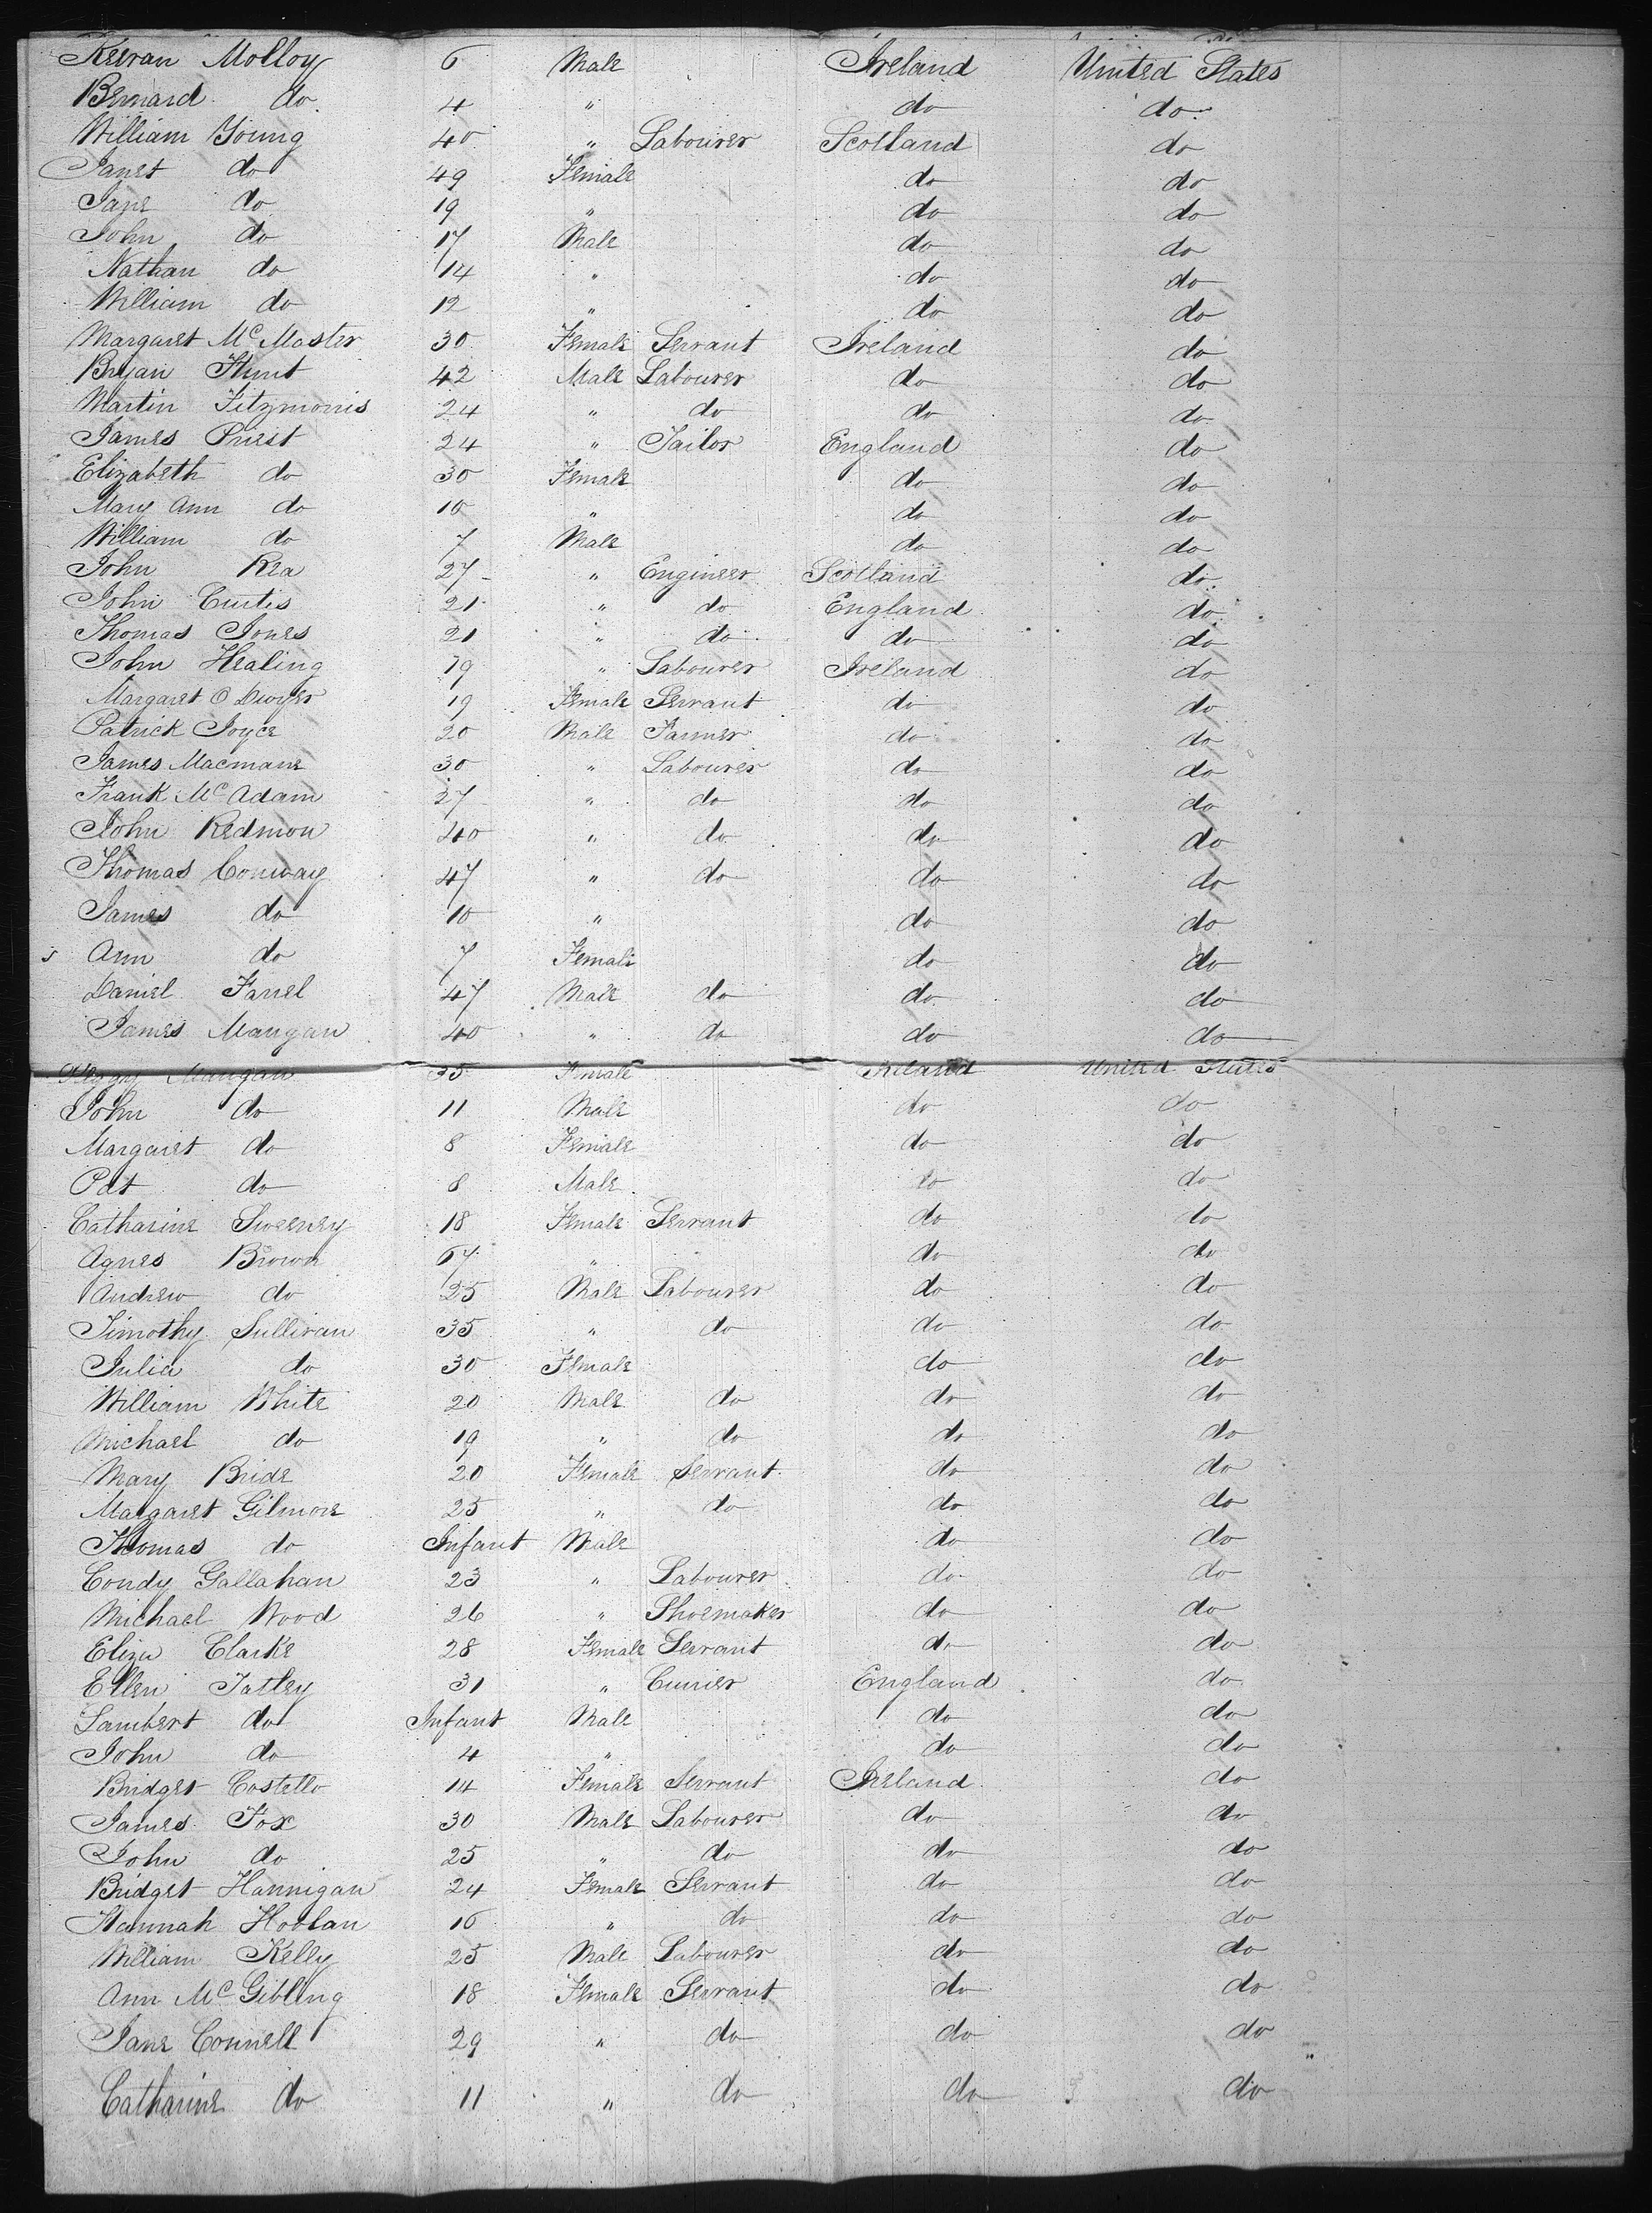 Keeran Molloy 6 Male Ireland United States
Bernard do 4 " do do
William Young 40 " Labourer Scotland do
Janet do 49 Female do do
Jane do 19 " do do
John do 17 Male do do
Nathan do 14 " do do
William do 12 " do do
Margaret McMaster 30 Female Servant Ireland do
Bryan Hunt 42 Male Labourer do do
Martin Fitzmorris 24 " do do do
James Priest 24 " Tailor England do
Elizabeth do 30 Female do do
Mary Ann do 10 " do do
William do 7 Male do do
John Rea 27 " Engineer Scotland do
John Curtis 21 " do England do
Thomas Jones 21 " do do do
John Healing 19 " Labourer Ireland do
Margaret O Dwyer 19 Female Servant do do
Patrick Joyce 20 Male Farmer do do
James Macmane 30 " Labourer do do
Frank McAdam 27 " do do do
John Redmon 40 " do do do
Thomas Conway 47 " do do do
James do 10 " do do
Ann do 7 Female do do
Daniel Farrel 47 Male do do do
James Mangan 40 " do do do
Peggy Mangan 35 Female Ireland United States
John do 11 Male do do
Margaret do 8 Female do do
Pat do 8 Male do do
Catharine Sweeney 18 Female Servant do do
Agnes Brown 67 " do do
Andrew do 25 Male Labourer do do
Timothy Sullivan 35 " do do do
Julia do 30 Female do do
William White 20 Male do do do
Michael do 19 " do do do
Mary Bride 20 Female Servant do do
Margaret Gilmore 25 " do do do
Thomas do Infant Male do do
Condy Gallahan 23 " Labourer do do
Michael Wood 26 " Shoemaker do do
Eliza Clarke 28 Female Servant do do
Ellen Tatley 31 " Currier England do
Lambert do Infant Male do do
John do 4 " do do
Bridget Costello 14 Female Servant Ireland do
James Fox 30 Male Labourer do do
John do 25 " do do do
Bridget Hannigan 24 Female Servant do do
Hannah Hoolan 16 " do do do
William Kelly 25 Male Labourer do do
Ann McGibling 18 Female Servant do do
Jane Connell 29 " do do do
Catharine do 11 " do do do